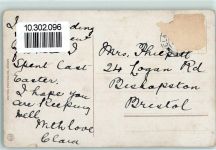 10.302.096
Spent last
Easter.
I hope you
are keeping
well
With love
Clara
Mrs. Phippett
24 Logan Rd
Bishopston
Bristol